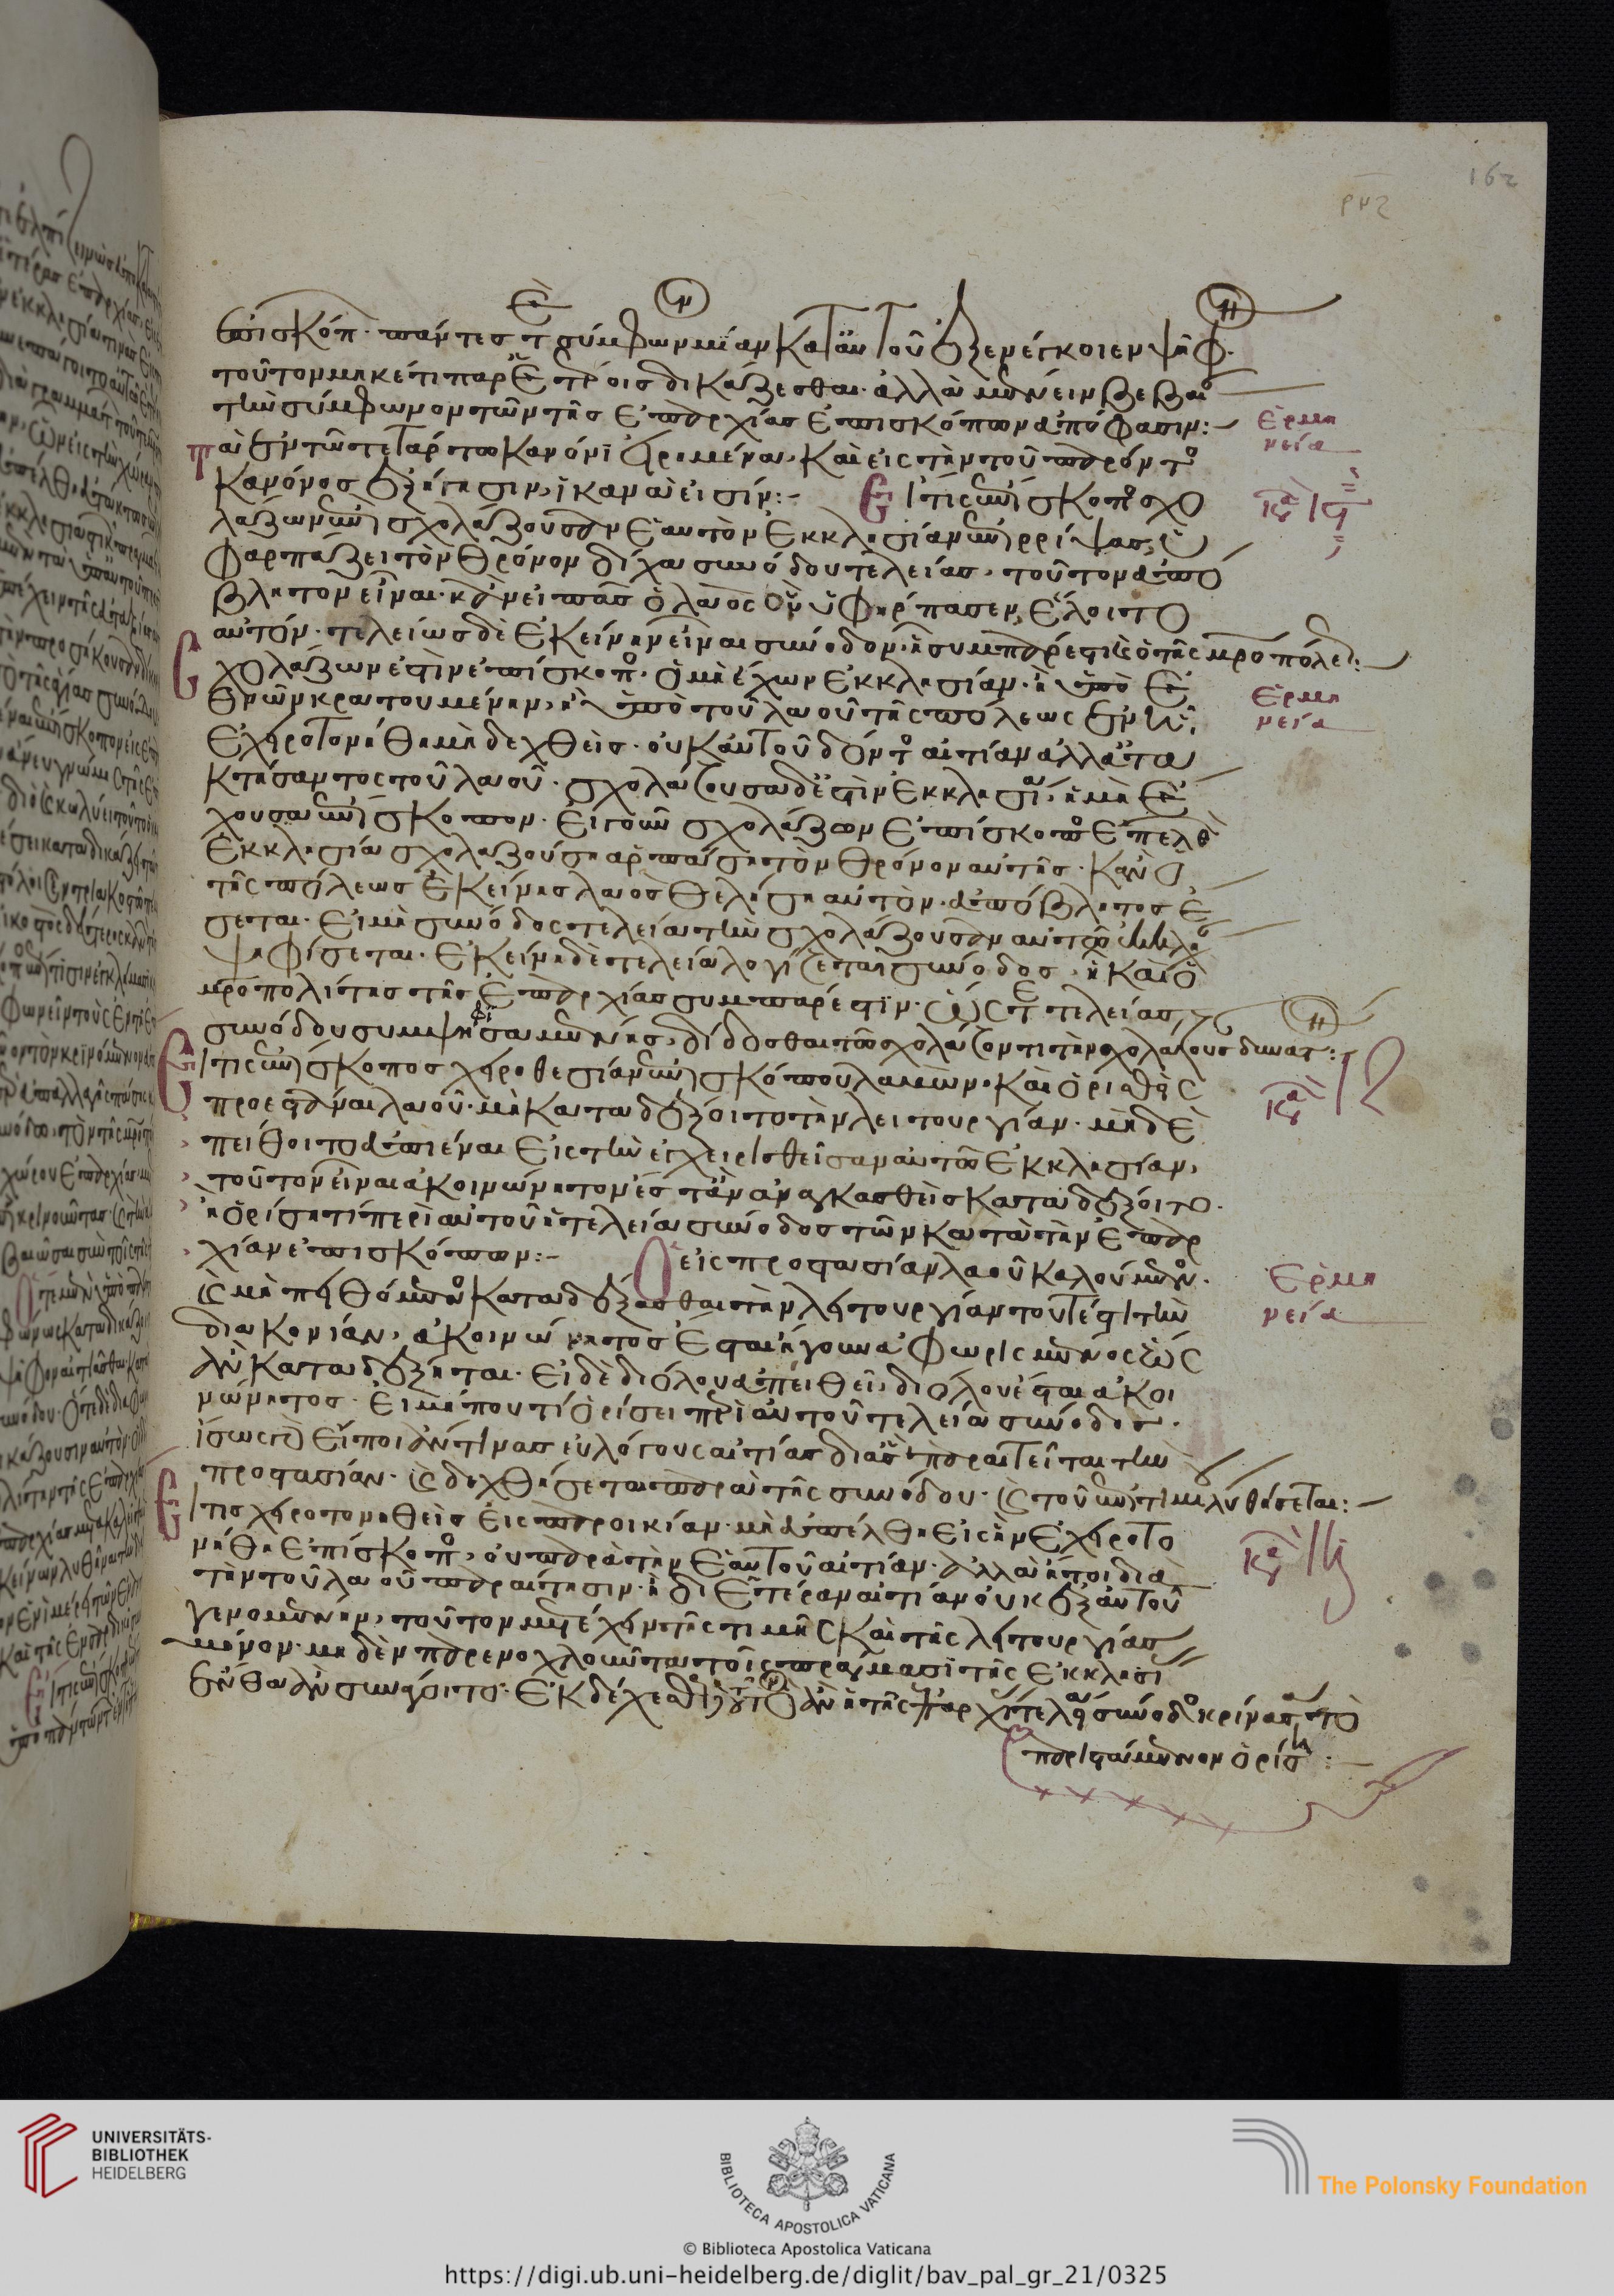 162
ρμς
ἐπισκόπ. πάντες τε σύμφωνον μίαν κατ' αὐτοῦ ἐξενέγκοιεν ψῆφ.
τοῦτον μηκέτι παρ' ἑτέροις δικάζεσθαι. ἀλλὰ μένειν βεβαί
τὴν σύμφωνον τῶν τῆς ἐπαρχίας ἐπισκόπων ἀπόφασιν:-
ἑρμη
νεία
τὰ ἐν τῷ τετάρτῳ κανόνι εἰρημένα, καὶ εἰς τὴν τοῦ παρόντο
κανόνος ἐξήγησιν, ἱκανὰ εἰσίν:- Εἴ τις ἐπίσκοπο σχο
κα ις
λάζων ἐπὶ σχολάζουσαν ἑαυτὸν ἐκκλησίαν ἐπιρρίψας, ὑ
φαρπάζει τὸν θρόνον δίχα συνόδου τελείας, τοῦτον ἀπό
βλητον εἶναι. κἂν εἰ πᾶς ὁ λαὸς ὃν ὑφήρπασεν, ἕλοιτο
αὐτόν. τελείαν δὲ ἐκείνην εἶναι σύνοδον, ᾗ συμπάρεστι καὶ ὁ τῆς μητροπόλε:
Σχολάζων ἐστὶν ἐπίσκοπο. ὁ μὴ ἔχων ἐκκλησίαν. ἢ ὑπὸ ἐ
ἑρμη
νεία
θνῶν κρατουμένην, ἢ ὑπὸ τοῦ λαοῦ τῆς πόλεως ἐν ᾗ
ἐχειροτονήθη μὴ δεχθεὶς. οὐ κατ' αὐτοῦ δόντο αἰτίαν ἀλλ' ἀτα
κτήσαντος τοῦ λαοῦ. σχολάζουσα δέ ἐστιν ἐκκλησία, ἡ μὴ ἔ
χουσα ἐπίσκοπον. εἰ γοῦν σχολάζων ἐπίσκοπο ἐπελθ
ἐκκλησία σχολαζούσῃ ἁρπάσῃ τὸν θρόνον αὐτῆς. κἂν ὁ
τῆς πόλεως ἐκείνης λαὸς θελήσῃ αὐτὸν. ἀπόβλητος ἔ
σεται. εἰ μὴ σύνοδος τελεία τὴν σχολάζουσαν αὐτῷ ἐκκλη
ψηφίσεται. ἐκείνη δὲ τελεία λογίζεται σύνοδος, ᾗ καὶ ὁ
μητροπολίτης τῆς ἐπαρχίας συμπάρεστιν. ὡς τε τελείας
συνόδου συμψηφισαμένης, δίδοσθαι τῷ σχολάζοντι τὴν σχολάζουσ δυνατ:
Εἴ τις ἐπίσκοπος χειροθεσίαν ἐπισκόπου λαβὼν. καὶ ὁρισθεὶς
κα ιζ
προεστάναι λαοῦ. μὴ καταδέξοιτο τὴν λειτουργίαν. μηδὲ
πείθοιτο ἀπιέναι εἰς τὴν ἐγχειρισθεῖσαν αὐτῷ ἐκκλησίαν,
τοῦτον εἶναι ἀκοινώνητον ἔς τ' ἂν ἀναγκασθεὶς καταδέξοιτο.
ἢ ὁρίσῃ τί περὶ αὐτοῦ ἡ τελεία σύνοδος τῶν κατὰ τὴν ἐπαρ
χίαν ἐπισκόπων:- Ὁ εἰς προστασίαν λαοῦ καλούμενο.
ἑρμη
νεία
καὶ μὴ πειθόμενο καταδέξασθαι τὴν λειτουργίαν τουτέστι τὴν
διακονίαν, ἀκοινώνητος ἔσται ἤγουν ἀφωρισμένος ἕως
ἂν καταδέξηται. εἰ δὲ διόλου ἀπειθεῖ, διόλου ἔσται ἀκοι
νώνητος. εἰ μή που τί ὁρίσει περὶ αὐτοῦ τελεία σύνοδος.
ἴσως γὰρ εἴποι ἄν τινας εὐλόγους αἰτίας δι' ἃς παραιτεῖται τὴν
προστασίαν. καὶ δεχθήσεται παρὰ τῆς συνόδου. καὶ τοῦ ἐπιτιμίου λυθήσεται:-
Εἴ τις χειροτονηθεὶς εἰς παροικίαν. μὴ ἀπέλθῃ εἰς ἣν ἐχειροτο
κα ιη
νήθη ἐπίσκοπο, οὐ παρὰ τὴν ἑαυτοῦ αἰτίαν. ἀλλ' ἤτοι διὰ
τὴν τοῦ λαοῦ παραίτησιν. ἢ δι' ἑτέραν αἰτίαν οὐκ ἐξ αὐτοῦ
γενομένην, τοῦτον μετέχειν τῆς τιμῆς καὶ τῆς λειτουργίας
μόνον. μηδὲν παρενοχλοῦντα τοῖς πράγμασι τῆς ἐκκλησί
ἔνθα ἂν συνάγοιτο. ἐκδέχεσθαι δὲ τοῦτον ὃ ἂν ἡ τῆς ἐπαρχί τελεία σύνοδο κρίνασα τὸ
παριστάμενον ὁρίσῃ:-
UNIVERSITÄTS-
BIBLIOTHEK
HEIDELBERG
BIBLIOTECA APOSTOLICA VATICANA
The Polonsky Foundation
© Biblioteca Apostolica Vaticana
https://digi.ub.uni-heidelberg.de/diglit/bav_pal_gr_21/0325